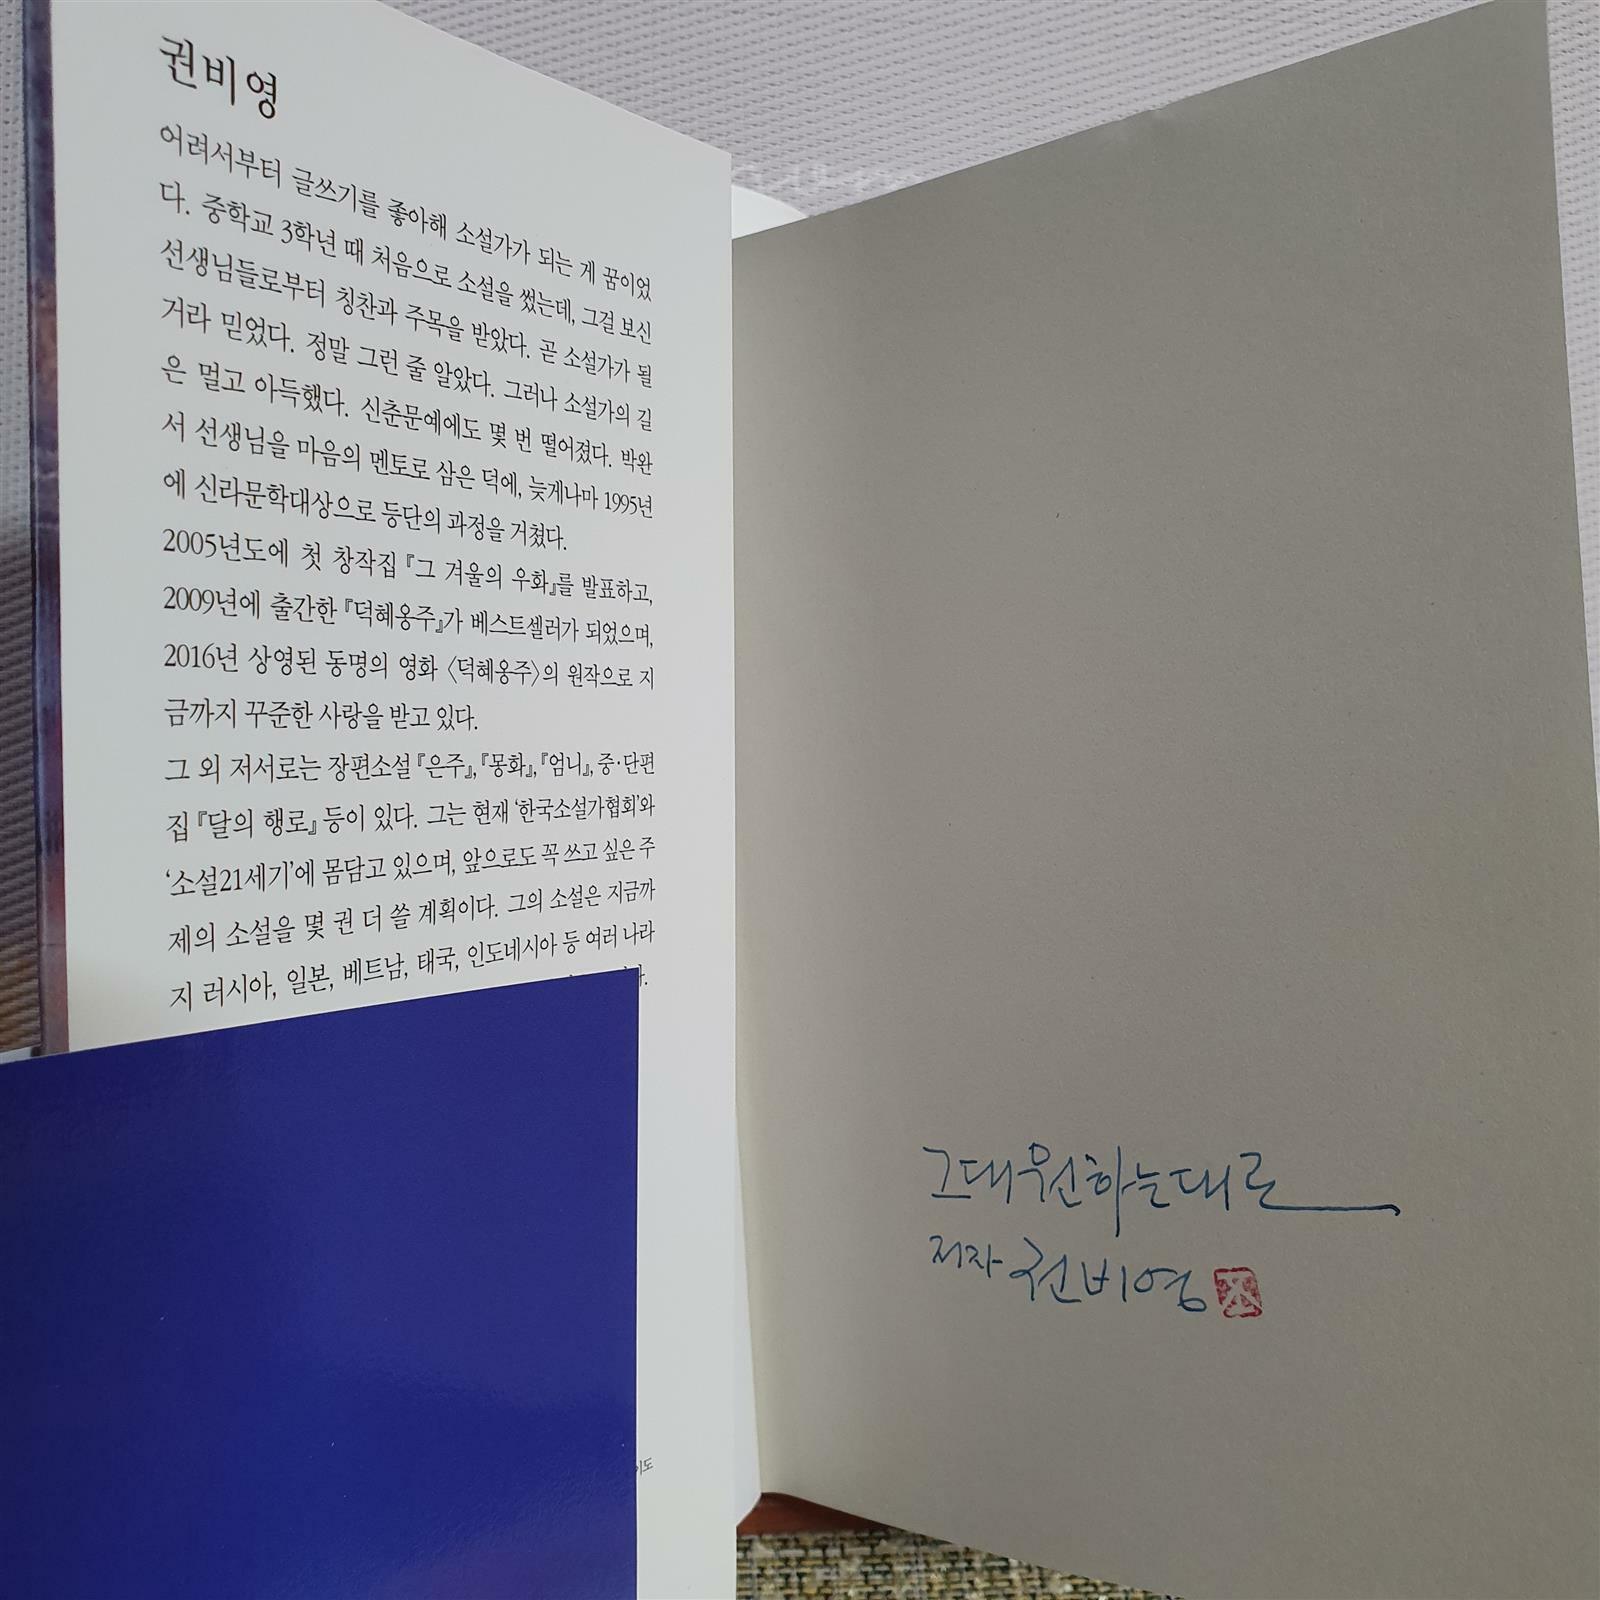 권비영
어려서부터 글쓰기를 좋아해 소설가가 되는 게 꿈이었
다. 중학교 3학년 때 처음으로 소설을 썼는데, 그걸 보신
선생님들로부터 칭찬과 주목을 받았다. 곧 소설가가 될
거라 믿었다. 정말 그런 줄 알았다. 그러나 소설가의 길
은 멀고 아득했다. 신춘문예에도 몇 번 떨어졌다. 박완
서 선생님을 마음의 멘토로 삼은 덕에, 늦게나마 1995년
에 신라문학대상으로 등단의 과정을 거쳤다.
2005년도에 첫 창작집 『그 겨울의 우화』를 발표하고,
2009년에 출간한 『덕혜옹주』가 베스트셀러가 되었으며,
2016년 상영된 동명의 영화 〈덕혜옹주〉의 원작으로 지
금까지 꾸준한 사랑을 받고 있다.
그 외 저서로는 장편소설 『은주』, 『몽화』, 『엄니』, 중·단편
집 『달의 행로』 등이 있다. 그는 현재 ‘한국소설가협회’와
‘소설21세기’에 몸담고 있으며, 앞으로도 꼭 쓰고 싶은 주
제의 소설을 몇 권 더 쓸 계획이다. 그의 소설은 지금까
지 러시아, 일본, 베트남, 태국, 인도네시아 등 여러 나라
그대 원하는대로
저자 권비영